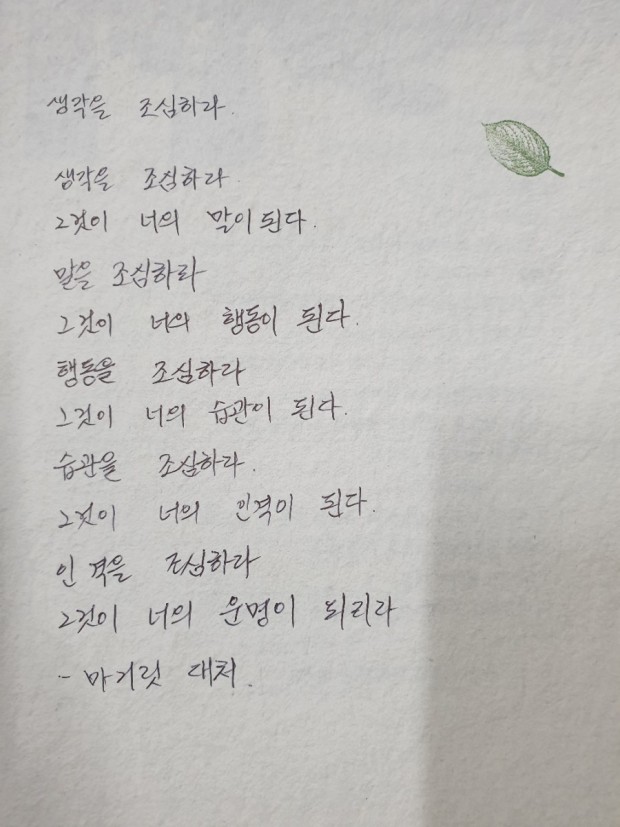 생각을 조심하라.
생각을 조심하라.
그것이 너의 말이 된다.
말을 조심하라
그것이 너의 행동이 된다.
행동을 조심하라
그것이 너의 습관이 된다.
습관을 조심하라.
그것이 너의 인격이 된다.
인격을 조심하라
그것이 너의 운명이 되리라
- 마거릿 대처.